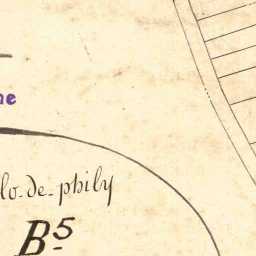 ne
lo-de-phily
B⁵